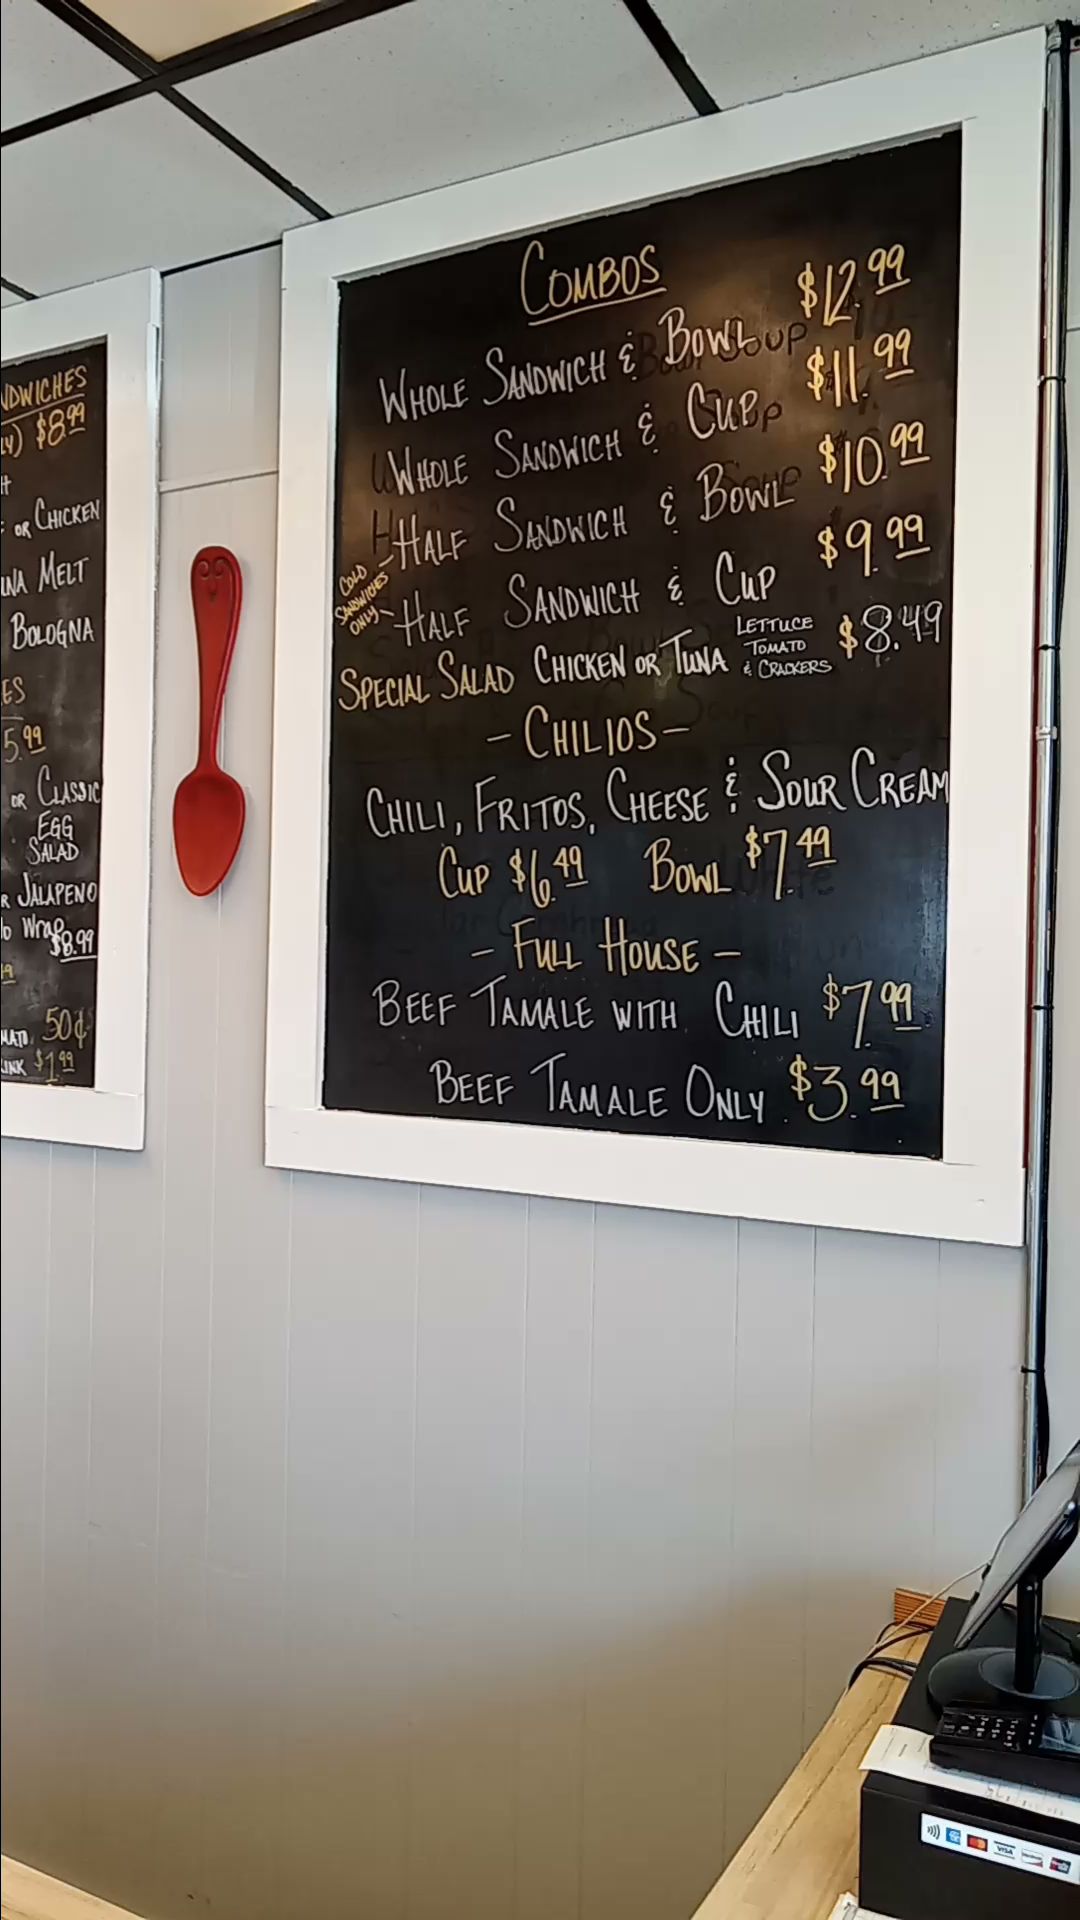 NDWICHES
LY) $8.99
H
OR CHICKEN
UNA MELT
BOLOGNA
ES
5.99
OR CLASSIC
EGG
SALAD
R JALAPENO
Wrap
$8.99
50¢
INK $1.99
COMBOS
WHOLE SANDWICH & BOWL $12.99
WHOLE SANDWICH & CUP $11.99
HALF SANDWICH & BOWL $10.99
COLD
SANDWICHES
ONLY
HALF SANDWICH & CUP $9.99
SPECIAL SALAD CHICKEN OR TUNA LETTUCE TOMATO & CRACKERS $8.49
- CHILIOS -
CHILI, FRITOS, CHEESE & SOUR CREAM
CUP $6.49 BOWL $7.49
- FULL HOUSE -
BEEF TAMALE WITH CHILI $7.99
BEEF TAMALE ONLY $3.99
VISA